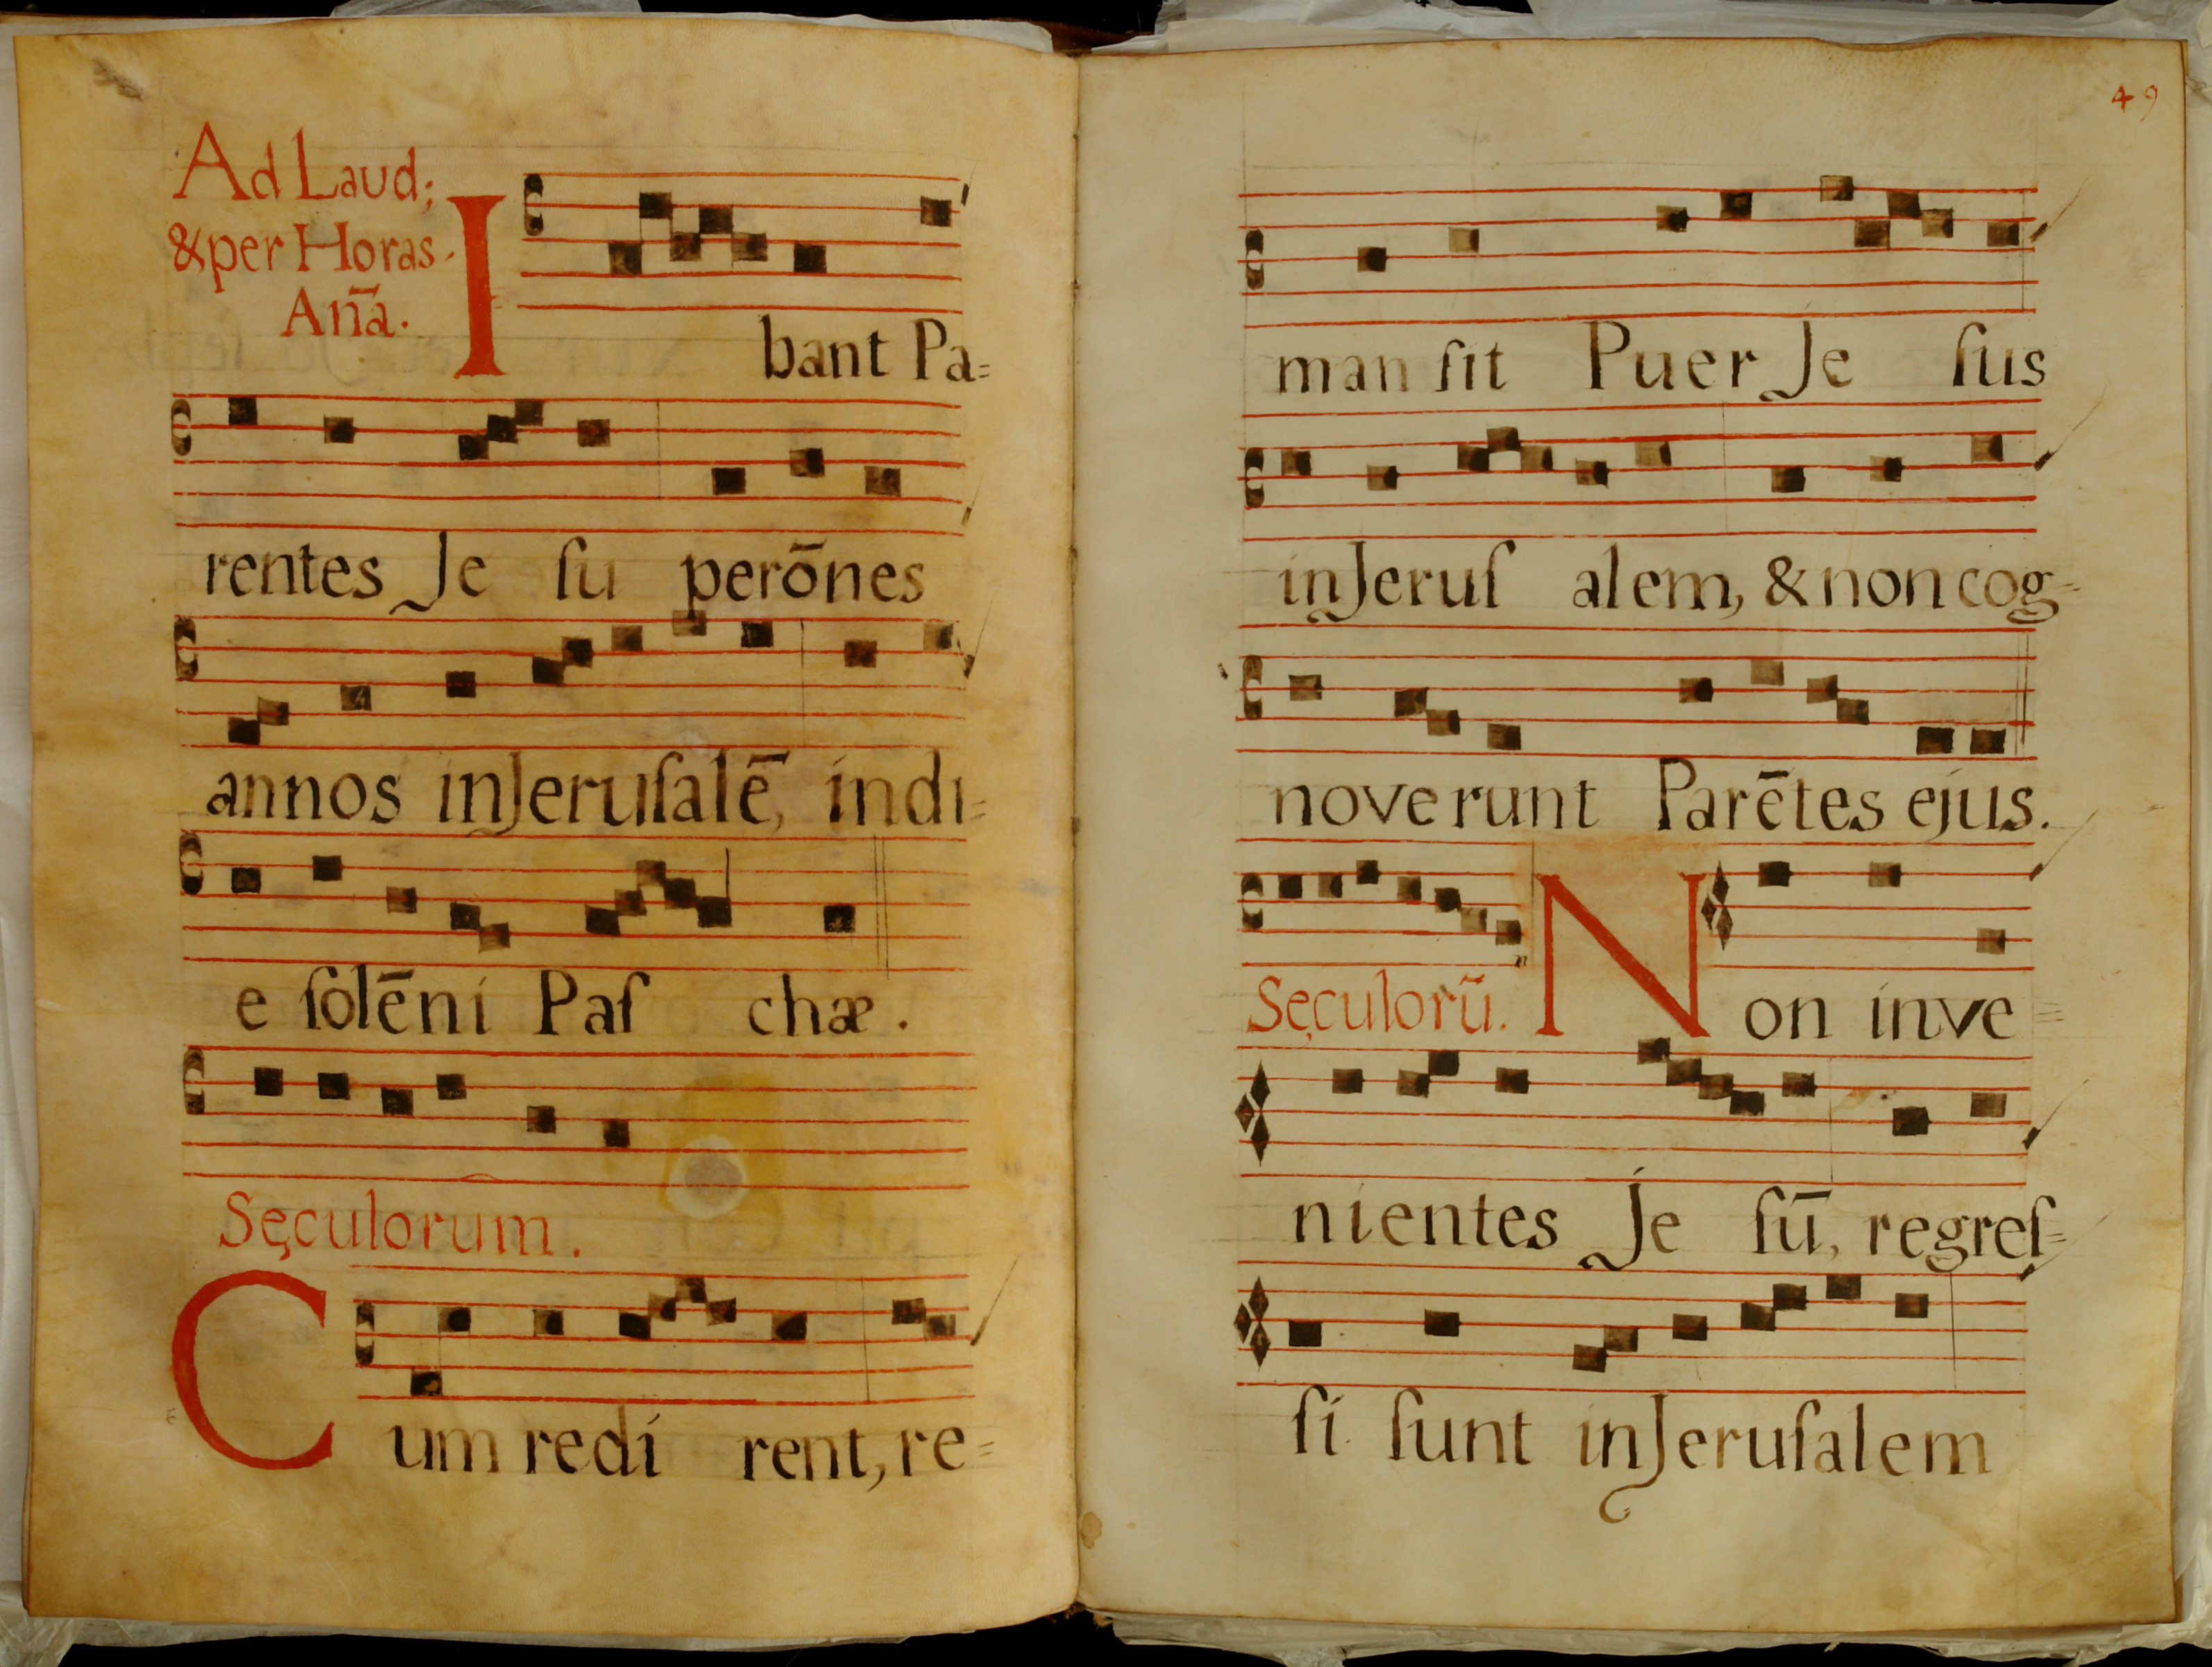 Ad Laud;
& per Horas.
Aña.
Ibant Pa=
rentes Je ſu perōnes
annos inJeruſalē, indi=
e ſolēni Paſ chæ.
Sęculorum.
Cum redi rent, re=
49
man ſit Puer Je ſus
inJeruſ alem, & non cog=
noverunt Parētes ejus.
Sęculorũ. Non inve=
nientes Je ſū, regreſ=
ſi ſunt inJeruſalem